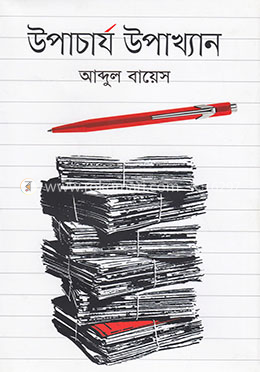 উপাচার্য উপাখ্যান
আব্দুল বায়েস